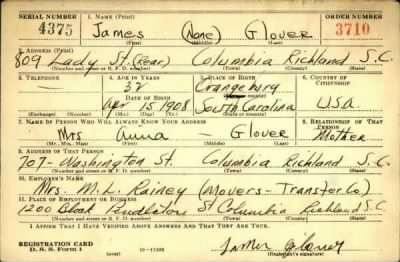 SERIAL NUMBER 1. NAME (Print) ORDER NUMBER
4375 James (None) Glover 3710
(First) (Middle) (Last)
2. ADDRESS (Print)
809 Lady St. (Rear) Columbia Richland S.C.
(Number and street or R. F. D. number) (Town) (County) (State)
3. TELEPHONE 4. AGE IN YEARS 5. PLACE OF BIRTH 6. COUNTRY OF CITIZENSHIP
— 32 Orangeburg
DATE OF BIRTH (Town or county)
Apr 15 1908 South Carolina USA
(Exchange) (Number) (Mo.) (Day) (Yr.) (State or country)
7. NAME OF PERSON WHO WILL ALWAYS KNOW YOUR ADDRESS 8. RELATIONSHIP OF THAT PERSON
Mrs Anna — Glover Mother
(Mr., Mrs., Miss) (First) (Middle) (Last)
9. ADDRESS OF THAT PERSON
707 - Washington St. Columbia Richland S.C.
(Number and street or R. F. D. number) (Town) (County) (State)
10. EMPLOYER'S NAME
Mrs. M. L. Rainey (Movers - Transfer Co)
11. PLACE OF EMPLOYMENT OR BUSINESS
1200 Block Pendleton St Columbia Richland S.C.
(Number and street or R. F. D. number) (Town) (County) (State)
I AFFIRM THAT I HAVE VERIFIED ABOVE ANSWERS AND THAT THEY ARE TRUE.
REGISTRATION CARD
D. S. S. Form 1 James Glover
(Registrant's signature)